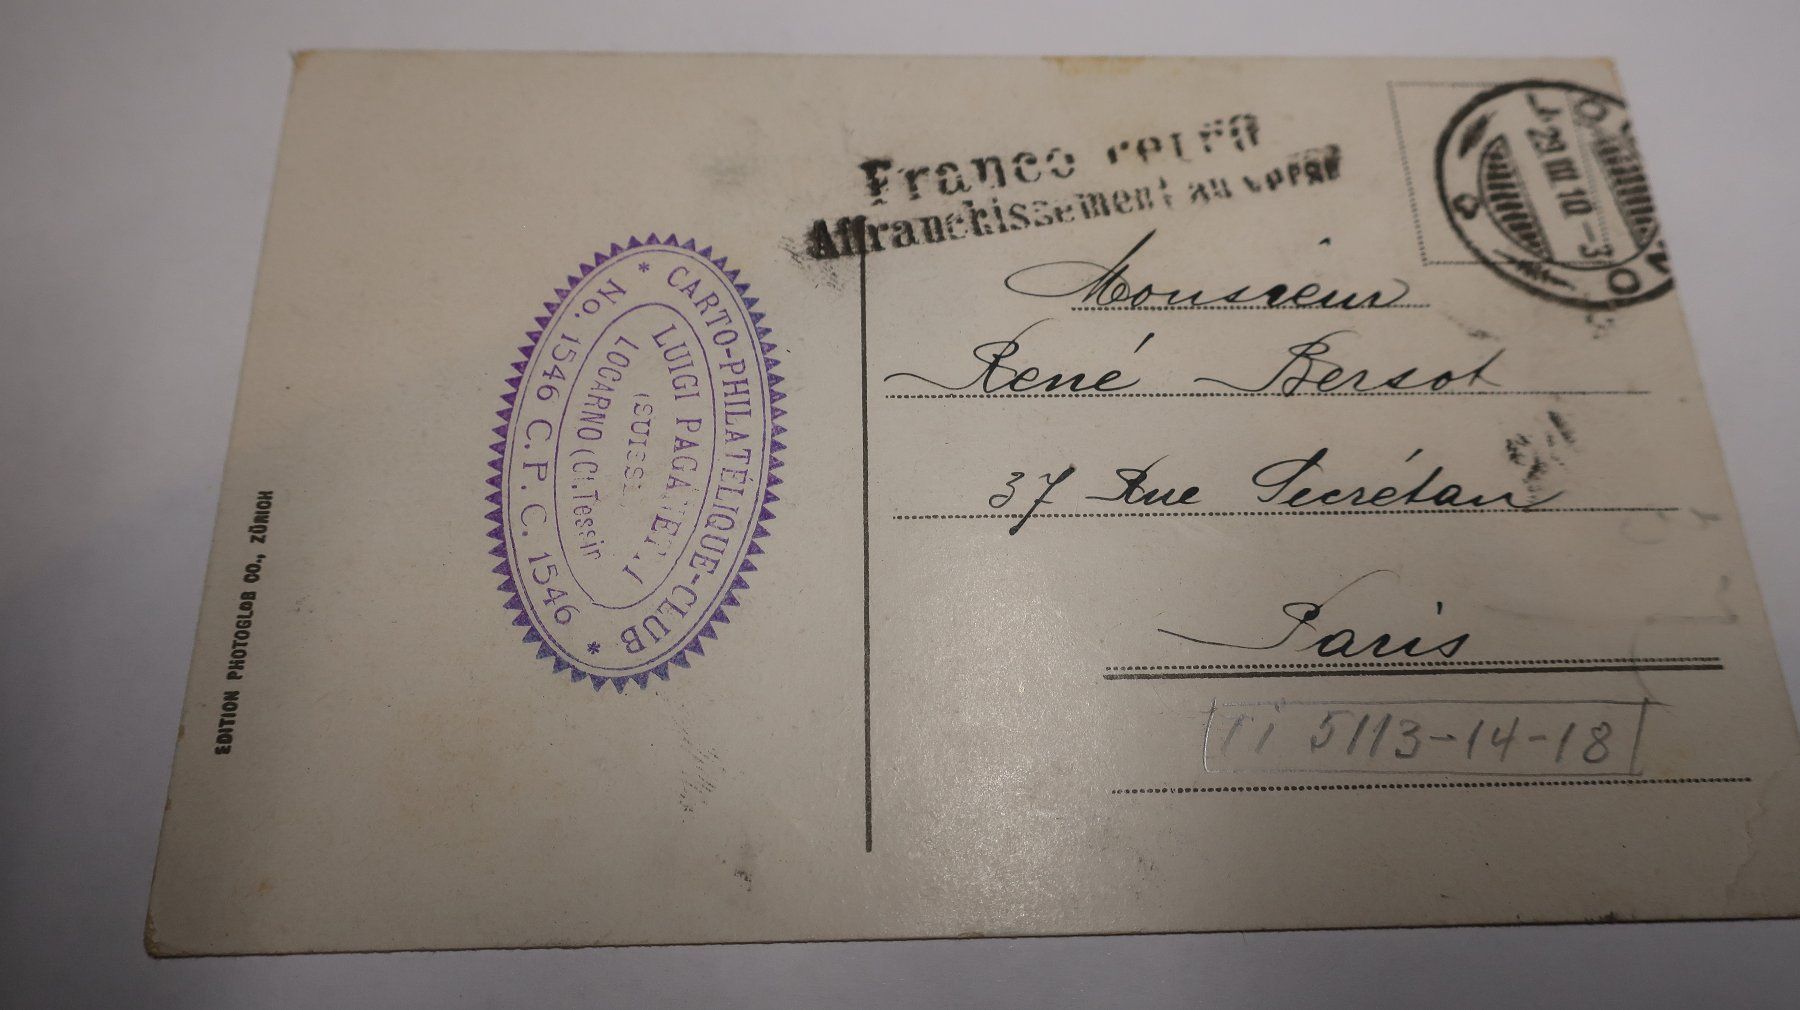 Franco retro
Affranchissement au verso
29 III 10 - 3
Monsieur
René Bersot
37 Rue Secrétan
Paris
Ti 5113-14-18
* CARTO-PHILATÉLIQUE-CLUB *
No. 1546 C. P. C. 1546
LUIGI
(SUISSE)
LOCARNO (Ct. Tessin
EDITION PHOTOGLOB CO., ZÜRICH